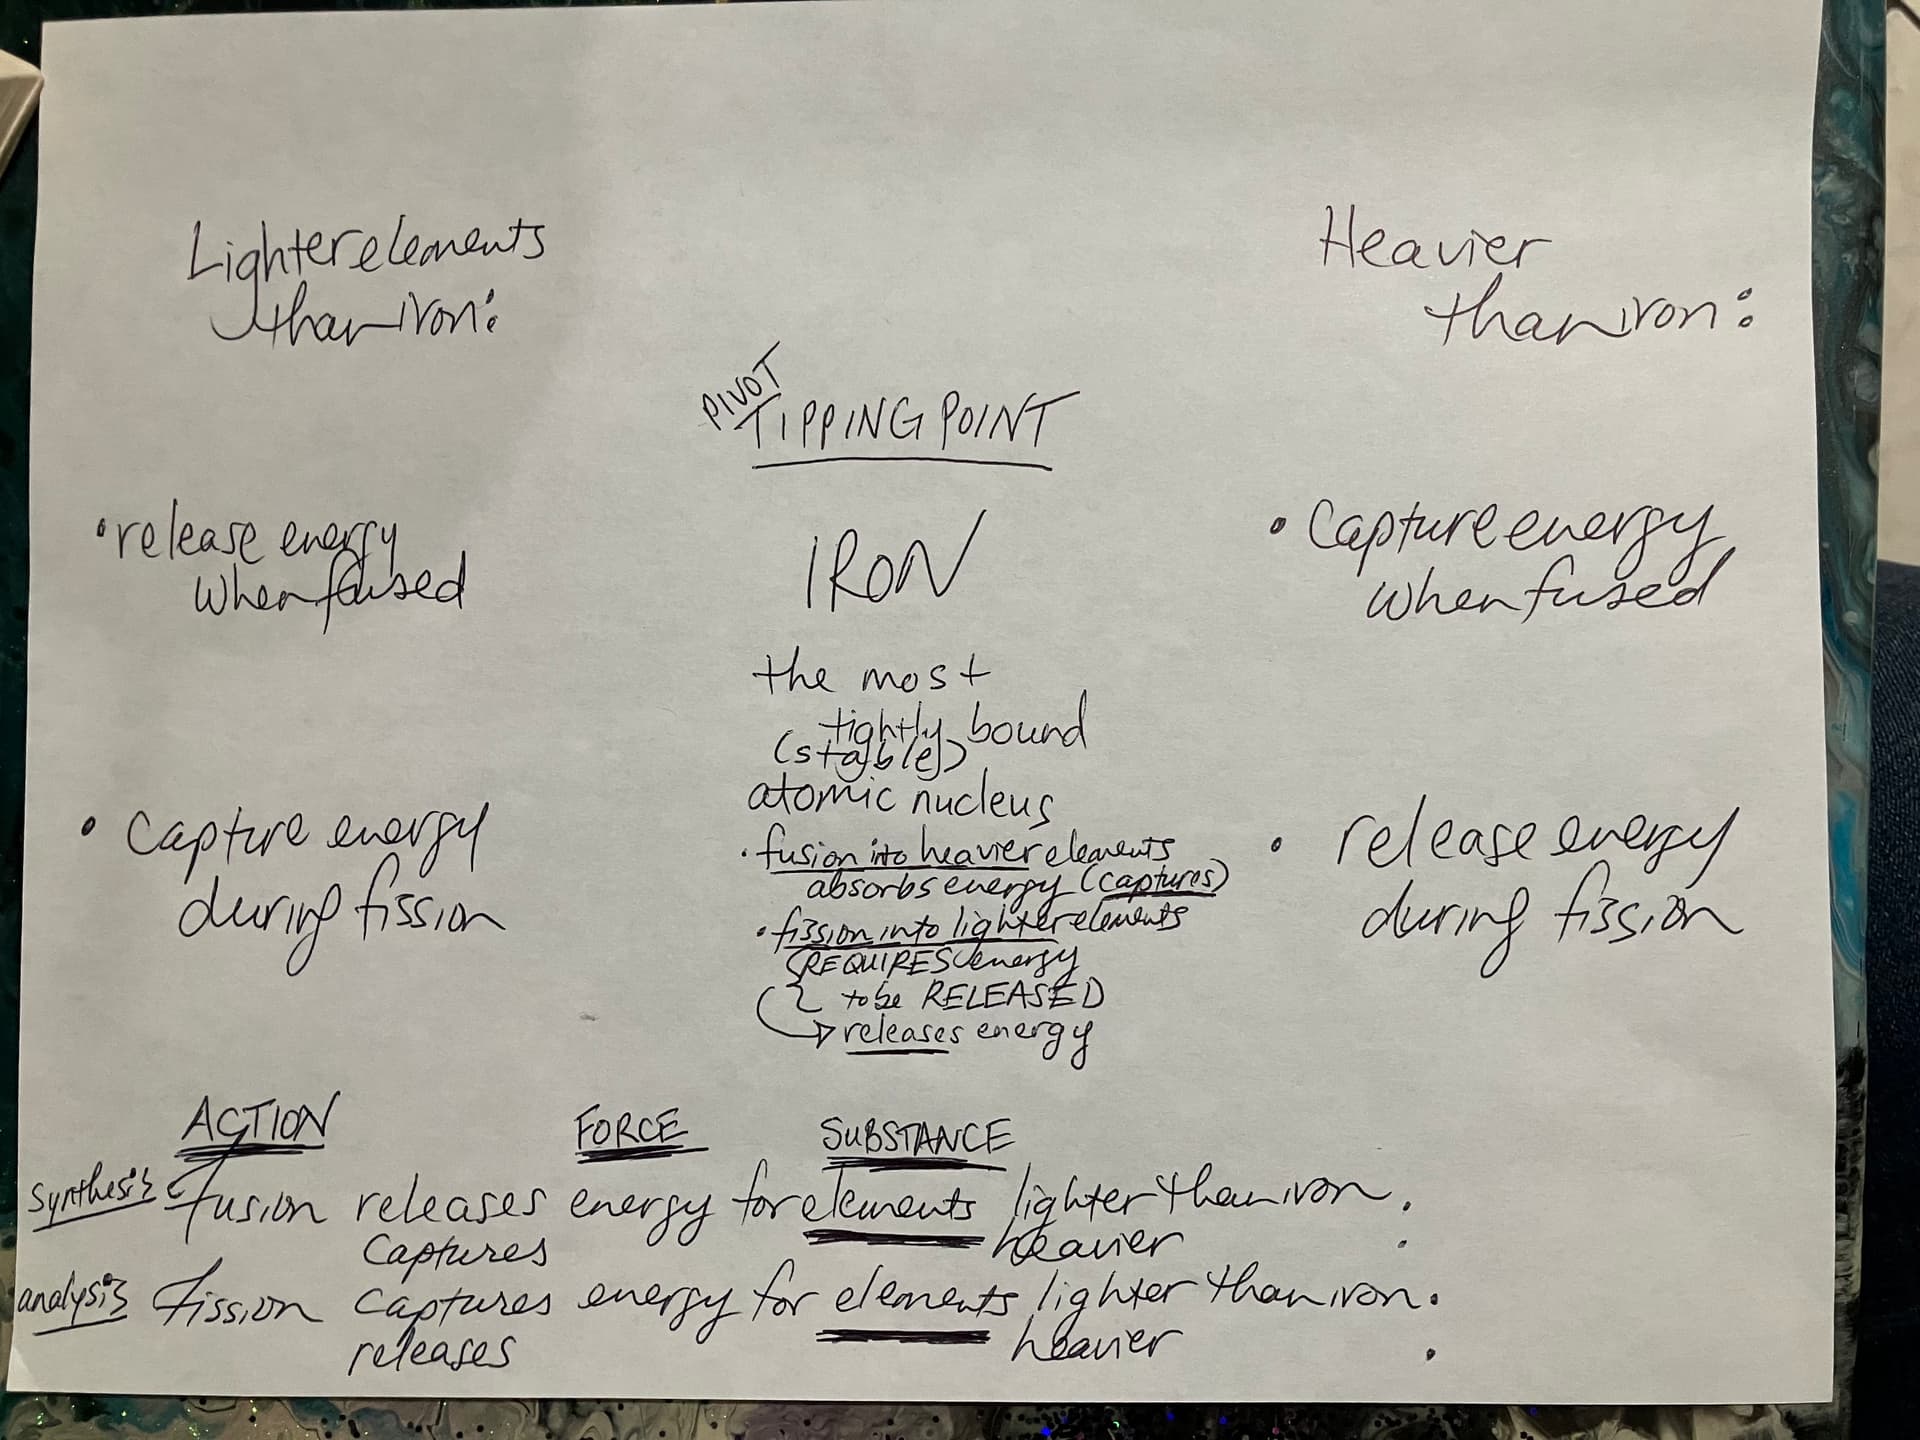 Lighter elements
than iron:
Heavier
than iron:
PIVOT
TIPPING POINT
• release energy
when fused
IRON
• Capture energy
when fused
the most
tightly bound
(stable)
atomic nucleus
• fusion into heavier elements
absorbs energy (captures)
• fission into lighter elements
REQUIRES energy
to be RELEASED
releases energy
• Capture energy
during fission
• release energy
during fission
ACTION FORCE SUBSTANCE
Synthesis Fusion releases energy for elements lighter than iron.
Captures heavier .
analysis Fission captures energy for elements lighter than iron.
releases heavier .